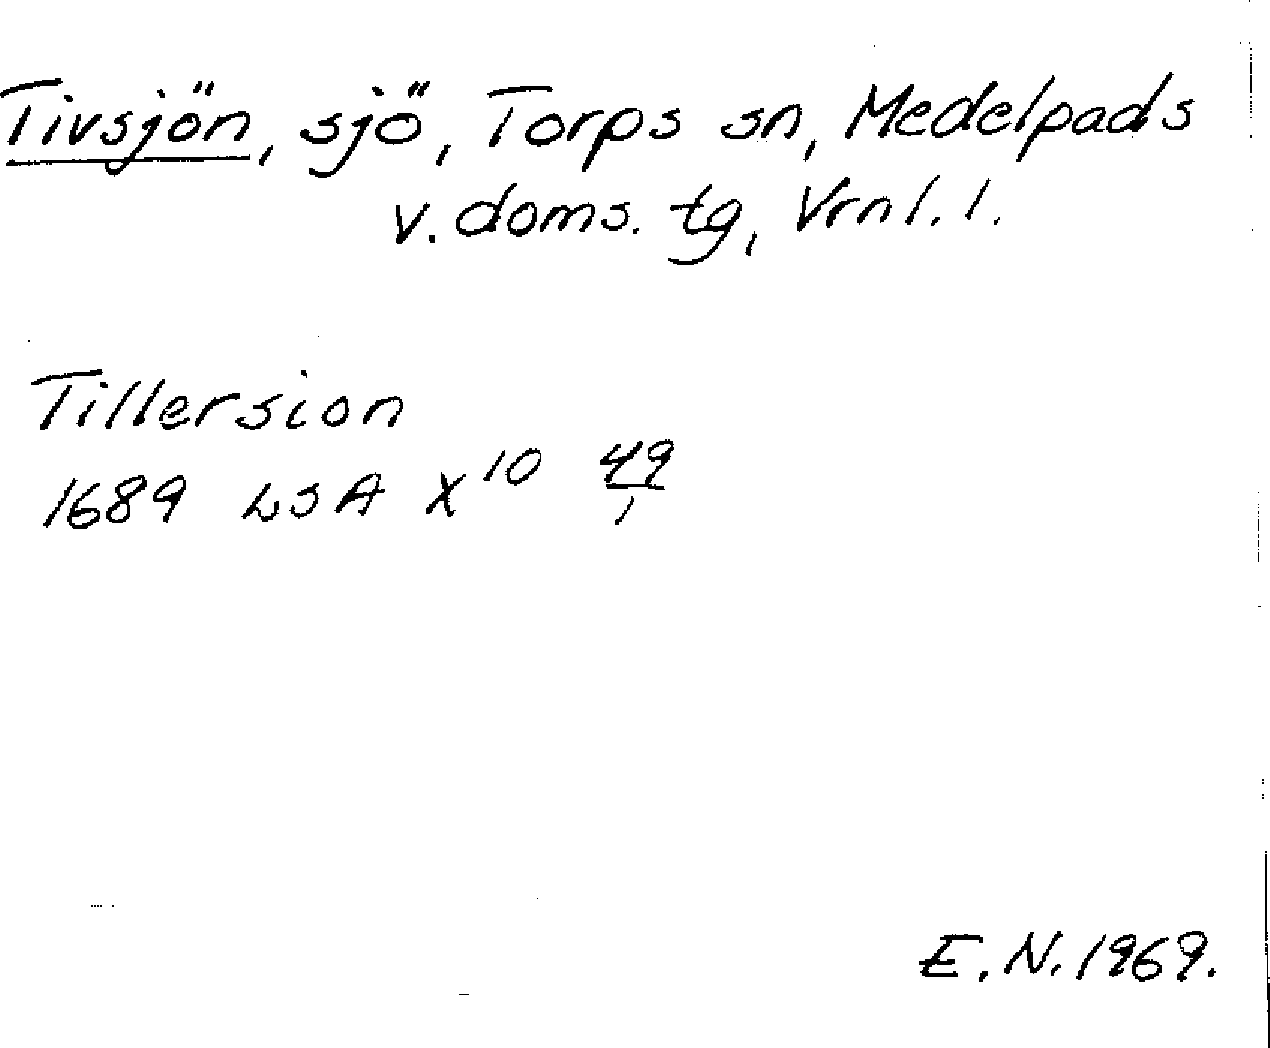 Tivsjön, sjö, Torps sn, Medelpads
v. doms. tg, Vrnl. l.
Tillersion
1689 LSA X10 49/1
E.N. 1969.